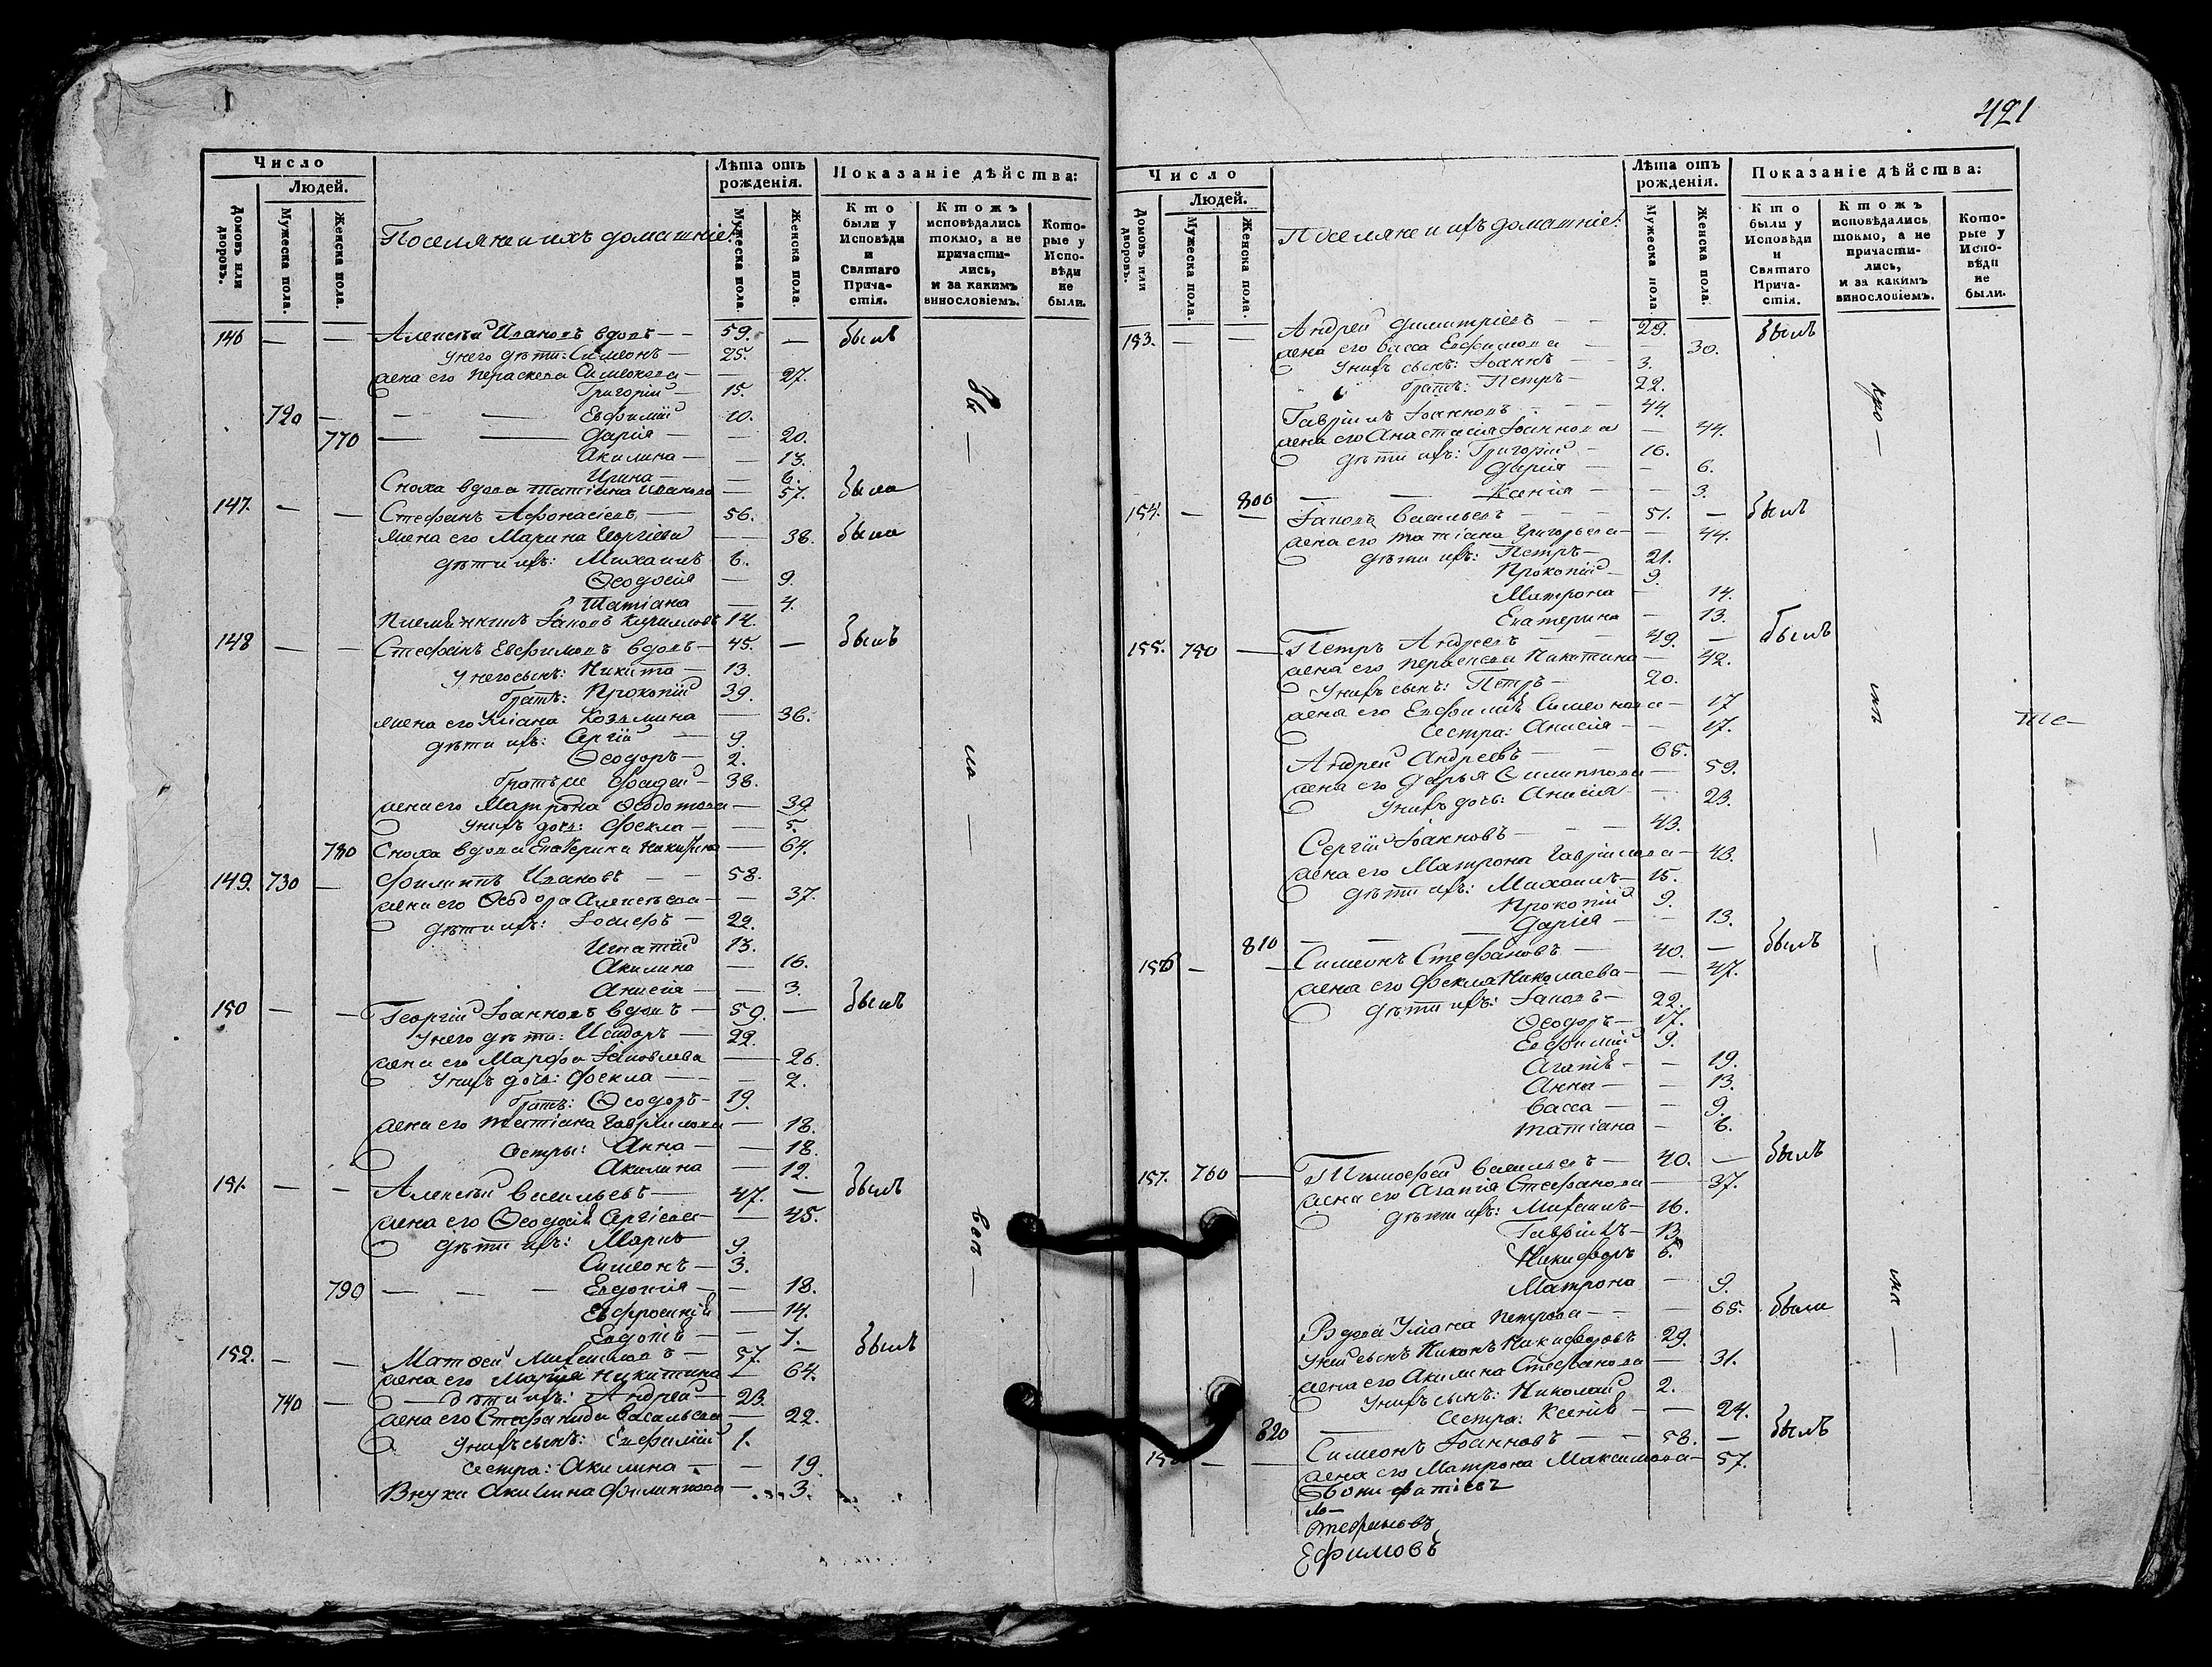 421
Число
Людей.
Домовъ или дворовъ.
Мужеска пола.
Женска пола.
Поселяне и ихъ домашніе:
Лѣта отъ рожденія.
Мужеска пола.
Женска пола.
Показаніе дѣйства:
Кто были у Исповѣди и Святаго Прича-стія.
Ктожъ исповѣдались токмо, а не причасти-лись, и за какимъ винословіемъ.
Кото-рые у Испо-вѣди не были.
146 — — Алексѣй Ивановъ вдовъ — 59. — былъ
У него дѣти: Симеонъ — 25.
жена его Параскева Симеонова — 27.
Григорій — 15.
720 — Евфимій 10.
770 — Дарія — 20.
Акилина — 13.
Ирина — 6.
Сноха вдова Татіана Иванова — 57. была
147. — — Стефанъ Афонасіевъ — 56.
жена его Марина Георгіева — 38. была
дѣти ихъ: Михаилъ 6.
Ѳеодосія — 9.
Татіана — 4.
Племянникъ Іаковъ Кирилловъ 14.
148 — — Стефанъ Евфимовъ вдовъ — 45. — былъ
У него сынъ: Никита — 13.
братъ: Прокопій 39.
жена его Козьмина — 36.
дѣти ихъ: Сергій — 9.
Ѳеодоръ — 2.
братъ же Фадей — 38.
жена его Матрона Ѳеодотова — 39
У нихъ дочь: Фекла — 5.
780 Сноха вдова Екатерина Никитина — 64.
149. 730 — Филиппъ Ивановъ — 58.
жена его Ѳеодора Алексѣева — 37.
дѣти ихъ: Іосифъ — 22.
Игнатій 13.
Акилина — 16.
Анисія — 3.
150 — — Георгій Іоанновъ вдовъ — 59. — былъ
У него дѣти: Исидоръ — 22.
жена его Марфа Іаковлева — 26.
У нихъ дочь: Фекла — 2.
братъ: Ѳеодоръ — 19.
жена его Татіана Гавріилова — 18.
сестры: Анна — 18.
Акилина — 12.
151. — — Алексѣй Васильевъ — 47. — былъ
жена его Ѳеодосія Сергіева — 45.
дѣти ихъ: Марко 9.
Симеонъ — 3.
790 — — Евдокія — 18.
Евфросинія — 14.
Евдокія — 7.
152. — — Матѳей Михаиловъ — 57. — былъ
жена его Марія Никитина — 64.
740 — дѣти ихъ: Андрей — 23.
жена его Стефанида Васильева — 22.
У нихъ сынъ: Евфимій 1.
сестра: Акилина — 19.
Внука Акилина Филиппова — 3.
Число
Людей.
Домовъ или дворовъ.
Мужеска пола.
Женска пола.
Поселяне и ихъ домашніе:
Лѣта отъ рожденія.
Мужеска пола
Женска пола.
Показаніе дѣйства:
Кто были у Исповѣди и Святаго Прича-стія.
Ктожъ исповѣдались токмо, а не причасти-лись, и за какимъ винословіемъ.
Кото-рые у Испо-вѣди не были.
153. — — Андрей Димитріевъ — 29. былъ
жена его Васса Евфимова — 30.
У нихъ сынъ: Іоаннъ — 3.
братъ: Петръ — 22.
Гавріилъ Іоанновъ — 44.
жена его Анастасія Іоаннова — 44.
дѣти ихъ: Григорій — 16.
Дарія — 6.
800 — — Ксенія — 3.
154. — — Іаковъ Васильевъ — 51. — былъ
жена его Татіана Григорьева — 44.
дѣти ихъ: Петръ — 21.
Прокопій — 9.
Матрона — 14.
Екатерина — 13.
155. 750 — Петръ Андреевъ — 49. — былъ
жена его Параскева Никитина — 42.
У нихъ сынъ: Петръ — 20.
жена его Евфимія Симеонова — 17
сестра: Анисія — 17.
Андрей Андреевъ — 65.
жена его Дарья Филиппова — 59.
У нихъ дочь: Анисія — 23.
Сергій Іоанновъ — 43.
жена его Матрона Гавріилова — 43.
дѣти ихъ: Михаилъ — 15.
Прокопій 9.
810 — — Дарія — 13.
156 — — Симеонъ Стефановъ — 40. — былъ
жена его Фекла Николаева — 47.
дѣти ихъ: Іаковъ — 22.
Ѳеодоръ — 17.
Евфимій 9.
Агапія — 19.
Анна — 13.
Васса — 9.
Татіана — 6.
157. 760 — Тимофей Васильевъ — 40. — былъ
жена его Агапія Стефанова — 37.
дѣти ихъ: Михаилъ — 16.
Гавріилъ — 13.
Никифоръ 6.
Матрона — 9.
Вдова Уліана Петрова — 65. была
У ней сынъ Никонъ Никифоровъ 29.
жена его Акилина Стефанова — 31.
У нихъ сынъ: Николай 2.
820 сестра: Ксенія — 24.
Симеонъ Іоанновъ — 58. — былъ
жена его Матрона Максимова — 57.
Вонифатіевъ
Стефановъ
Ефимовъ